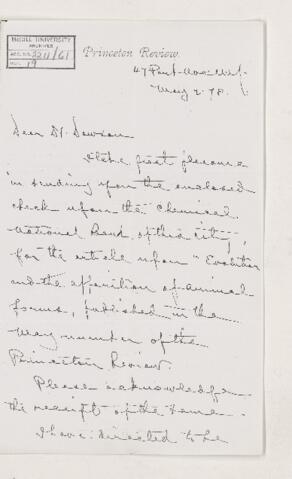 McGILL UNIVERSITY
ARCHIVES
ACC. NO. 2211/61
REF. 19
Princeton Review.
47 Park Row: N.Y.
May 2. 78.
Dear Dr. Dawson
I take great pleasure
in sending upon the enclosed
check upon the Chemical
National Bank of this city,
for the article upon "Evolution
and the apparition of animal
forms, published in the
May number of the
Princeton Review.
Please acknowledge
the receipt of the same.
I have directed to be